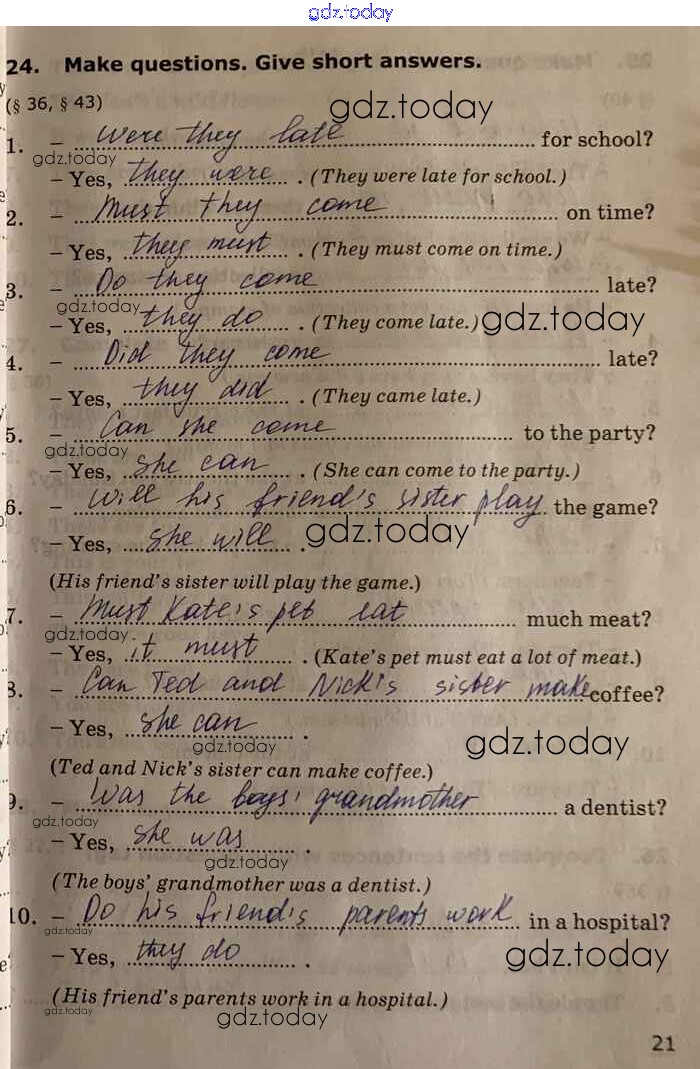 gdz.today
24. Make questions. Give short answers.
(§ 36, § 43)
gdz.today
1. – Were they late for school?
gdz.today
– Yes, they were . (They were late for school.)
2. – Must they come on time?
– Yes, they must . (They must come on time.)
3. – Do they come late?
gdz.today
– Yes, they do . (They come late.) gdz.today
4. – Did they come late?
– Yes, they did . (They came late.)
5. – Can she come to the party?
gdz.today
– Yes, she can . (She can come to the party.)
6. – Will his friend's sister play the game?
– Yes, she will . gdz.today
(His friend's sister will play the game.)
7. – Must Kate's pet eat much meat?
gdz.today
– Yes, it must . (Kate's pet must eat a lot of meat.)
8. – Can Ted and Nick's sister make coffee?
– Yes, she can .
gdz.today gdz.today
(Ted and Nick's sister can make coffee.)
9. – Was the boys' grandmother a dentist?
gdz.today
– Yes, she was .
gdz.today
(The boys' grandmother was a dentist.)
10. – Do his friend's parents work in a hospital?
gdz.today
– Yes, they do . gdz.today
(His friend's parents work in a hospital.)
gdz.today gdz.today
21